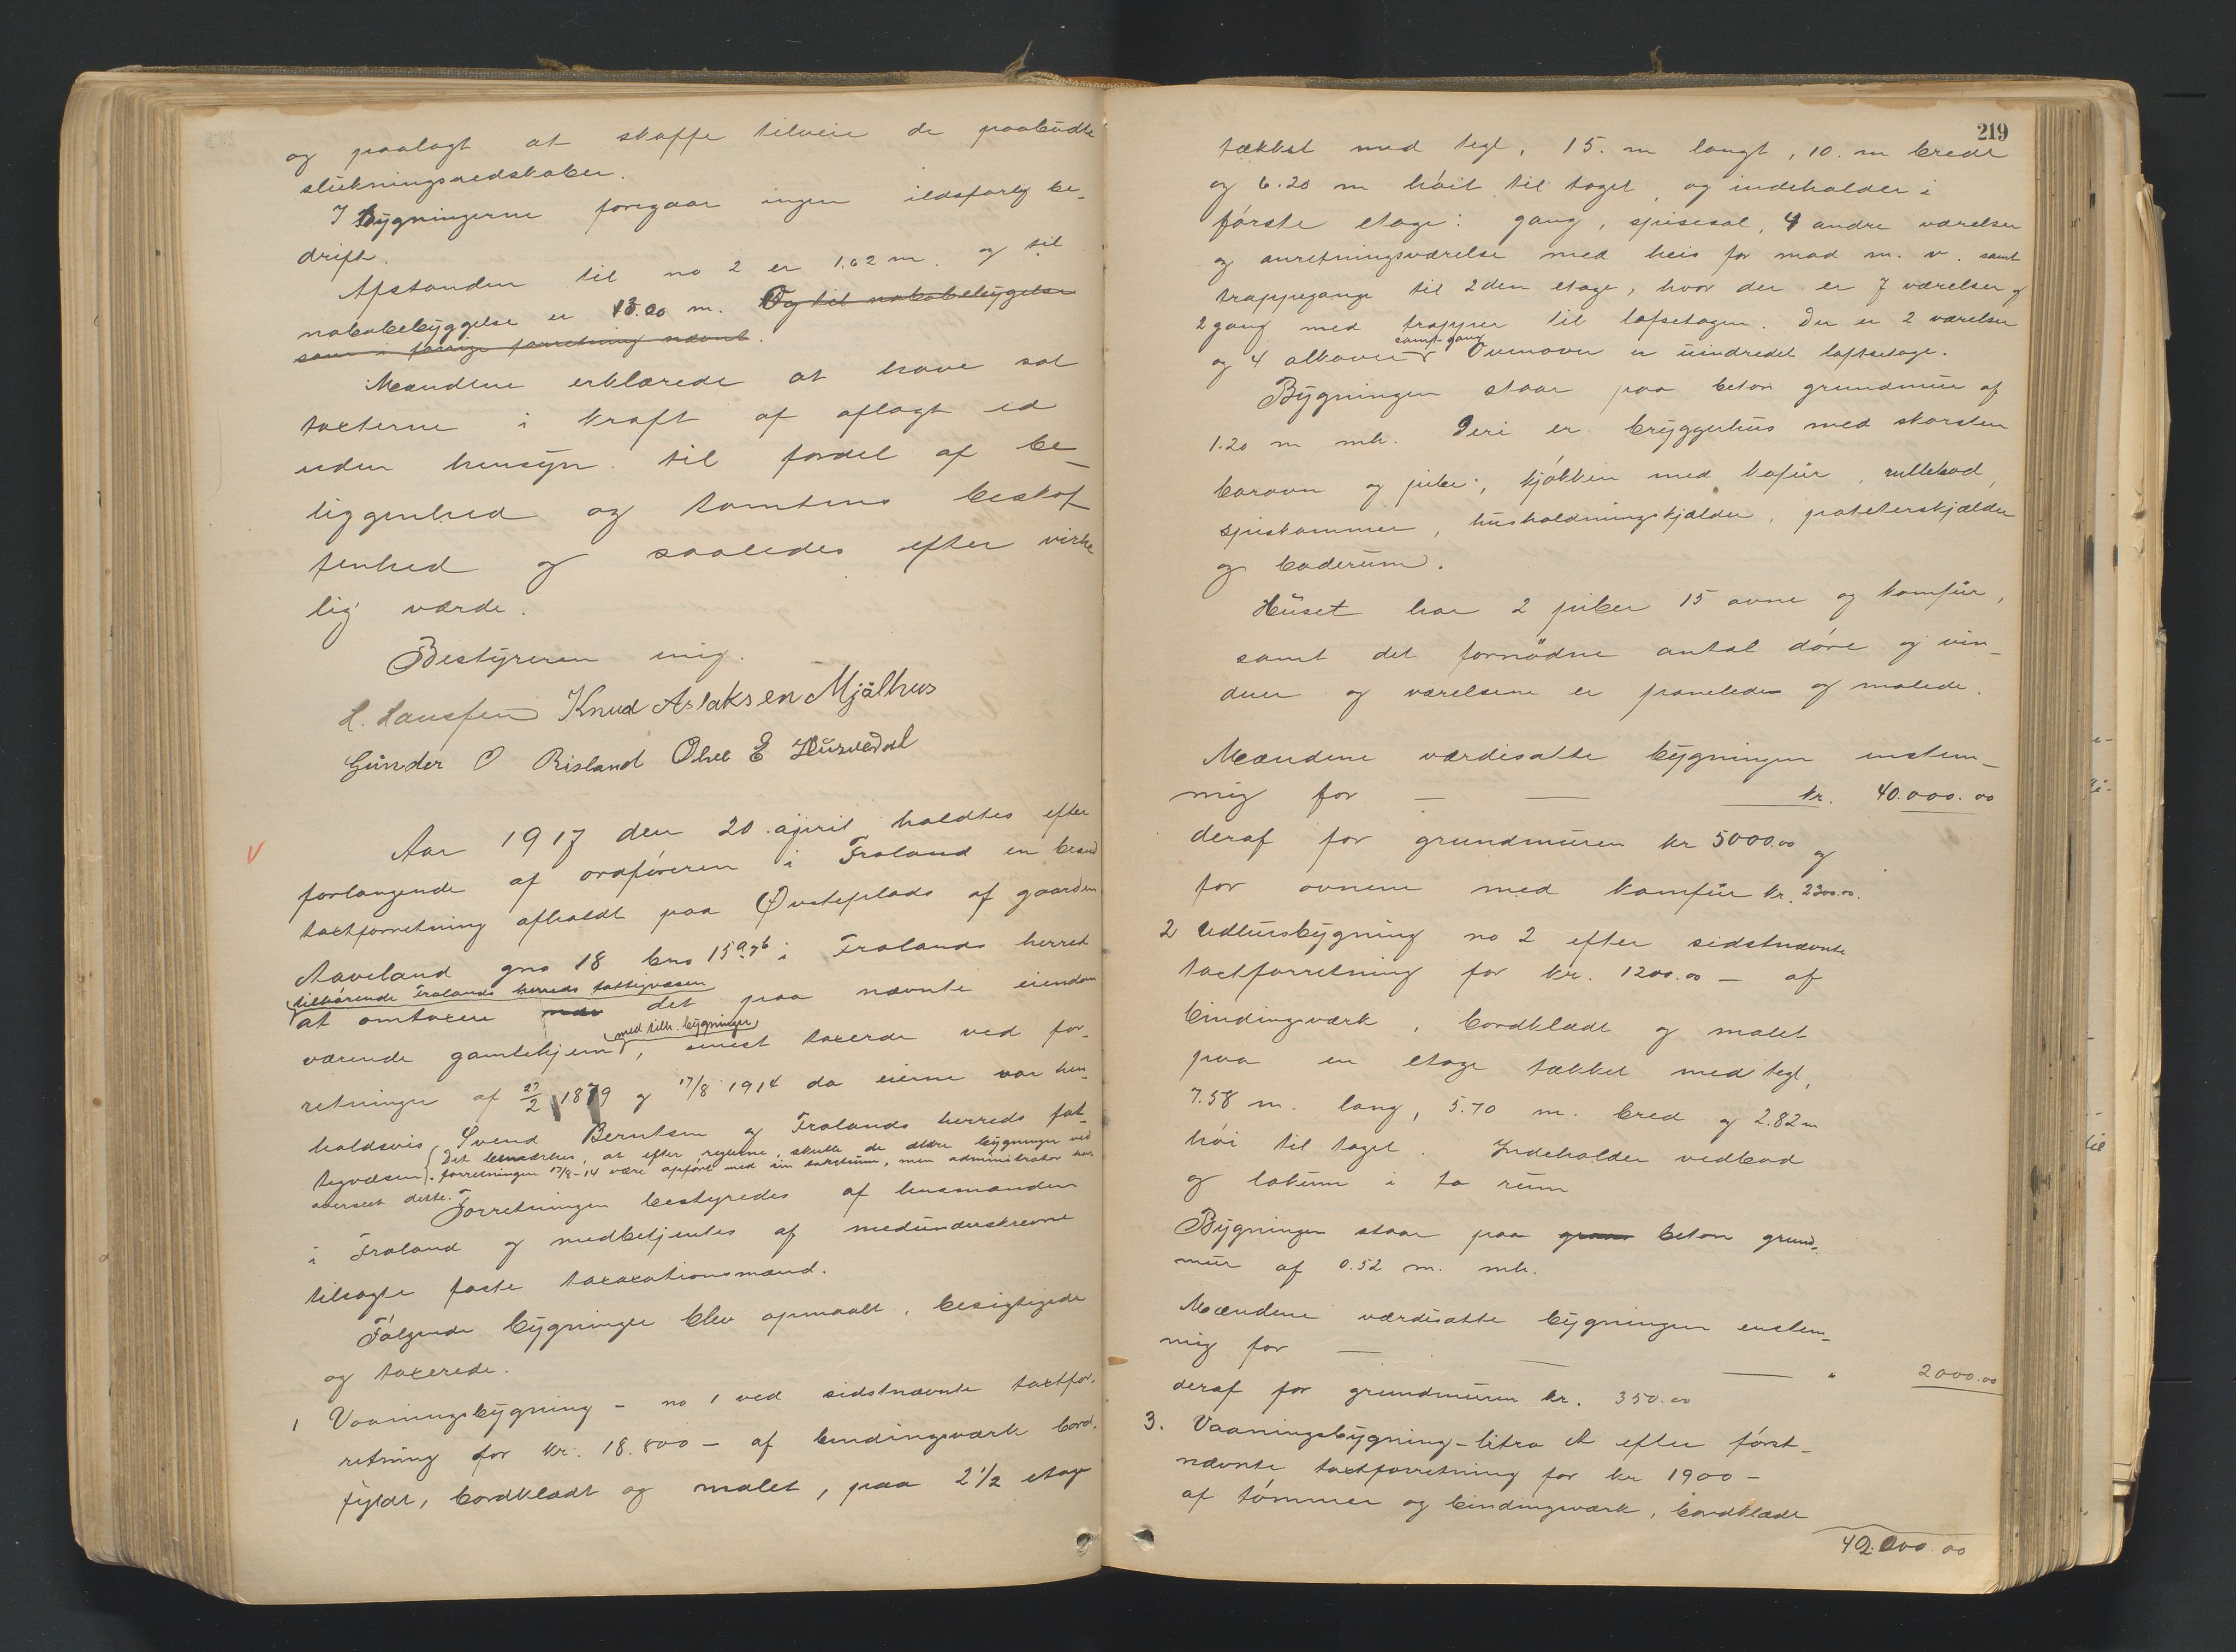 og paalagt at skaffe tilveie de paabudte
slukningsredskaber.
I Bygningerne foregaar ingen ildsfarlig be-
drift.
Afstanden til no 2 er 1.62 m. og til
nabobebyggelse er 13.00 m. Og til nabobebygelse
som i forrige forretning nævnt.
Mændene erklærede at have sat
taxterne i kraft af aflagt ed
uden hensyn til fordel af be-
liggenhed og tomtens beskaf
fenhed og saaledes efter virke
lig værde.
Bestyreren enig.
H. Haussen Knud Aslaksen Mjålhus
Gunder O Risland Olav E Husvedal
Aar 1917 den 20. april holdtes efter
forlangende af ordføreren i Froland en brand
taxtforretning afholdt paa Øvsteplads af gaarden
Aaveland gno 18 bno 15 a & b i Frolands herred
tilhørende Frolands herreds fattigvæsen
at omtaxere det paa nævnte eiendom
med tilh. bygninger
værende gamlehjem, senest taxerde ved for-
retninger af 27/2 1879 og 17/8 1914 da eierne var hen-
holdsvis Svend Berntsen og Frolands herreds fat-
(Det bemærkes, at efter reglerne skulde de ældre bygninger ved
tigvæsen). forretningen 17/8-14 være opført med sin taxtsum, men administrator har
overseet dette.
Forretningen bestyredes af lensmanden
i Froland og medbetjentes af medunderskrevne
tilsagte faste taxationsmænd.
Følgende bygninger blev opmaalt, besigtigede
og taxerede.
1 Vaaningsbygning - no 1 ved sidstnævnte taxtfor-
retning for kr. 18.800 - af bindingsværk bord-
fyldt, bordklædt og malet, paa 2 1/2 etage
219
tækket med tegl, 15. m langt, 10. m bredt
og 6.20 m høit til taget, og indeholder i
første etage: gang, spisesal, 4 andre værelser
og anretningsværelse med heis for mad m. v. samt
trappegange til 2den etage, hvor der er 7 værelser og
2 gang med trapper til loftsetagen. Der er 2 værelser
samt gang
og 4 alkover. Ovenover er uindredet loftsetage.
Bygningen staar paa beton grundmur af
1.20 m mh. Deri er bryggerhus med skorsten
barovn og pibe, kjøkken med kofur, rullebod,
spiskammer, husholdningskjælder, poteterskjælder
og baderum.
Huset har 2 piber 15 ovne og komfur,
samt det fornødne antal døre og vin-
duer og værelsene er panelede og malede.
Mændene værdisatte bygningen enstem-
mig for — — kr. 40.000.00
deraf for grundmuren kr 5000.00 og
for ovnene med komfur kr. 2300.00.
2 Udhusbygning no 2 efter sidstnævnte
taxtforretning for kr. 1200.00 - af
bindingsværk, bordklædt og malet
paa en etage tækket med tegl,
7.58 m. lang, 5.70 m. bred og 2.82 m
høi til taget. Indeholder vedbod
og lokum i to rum
Bygningen staar paa beton grund-
mur af 0.52 m. mh.
Mændene værdisatte bygningen enstem-
mig for — — — " 2000.00
deraf for grundmuren kr. 350.00
3. Vaaningsbygning - litra A efter først-
nævnte taxtforretning for kr 1900 -
af tømmer og bindingsværk, bordklædt
42.000.00